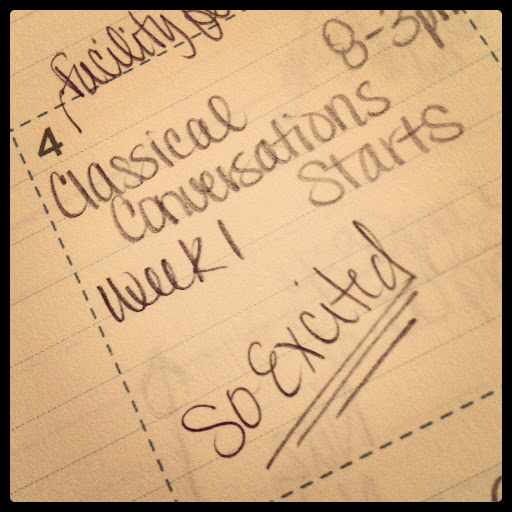 Facility
8-3pm
4
Classical
Conversations
Starts
Week 1
So Excited